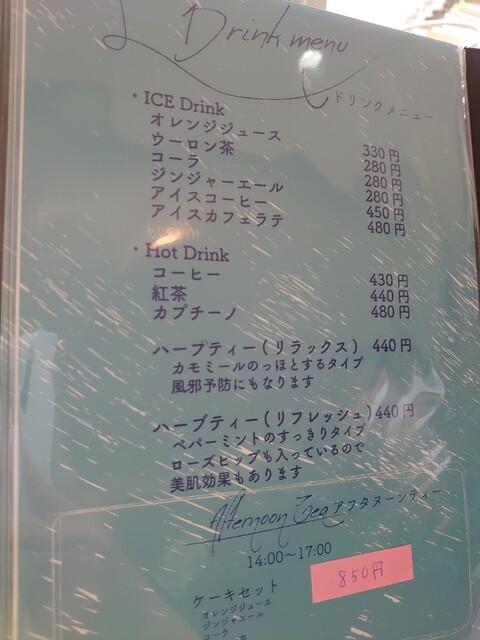 Drink menu
ドリンクメニュー
・ICE Drink
オレンジジュース 330円
ウーロン茶 280円
コーラ 280円
ジンジャーエール 280円
アイスコーヒー 450円
アイスカフェラテ 480円
・Hot Drink
コーヒー 430円
紅茶 440円
カプチーノ 480円
ハーブティー(リラックス) 440円
カモミールのっほとするタイプ
風邪予防にもなります
ハーブティー(リフレッシュ)440円
ペパーミントのすっきりタイプ
ローズヒップも入っているので
美肌効果もあります
Afternoon Tea アフタヌーンティー
14:00～17:00
850円
ケーキセット
オレンジジュース
ジンジャエール
コーラ